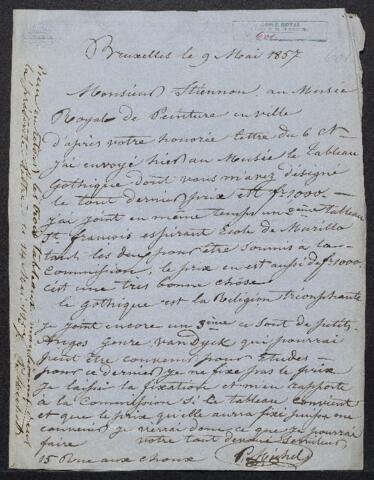 Bruxelles le 9 Mai 1857
Monsieur Stiennon au Musée
Royal de Peinture en ville
d'après votre honorée lettre du 6 Ct
j'ai envoyé hier au Musée le tableau
Gothique dont vous m'avez désigné
le tout dernier prix est fr 1000.—
j'ai joint en même temps un 2ème tableau
St françois expirant Ecole de Murillo
tout les deux pour être soumis a la
Commission, le prix en est aussi de fr 1000
c'est une tres bonne chose
le gothique est la Religion triomphante
je joint encore un 3ème ce sont de petits
Anges genre van Dyck qui pourrai
peut être convenir pour Etudes —
pour ce dernier je ne fixe pas le prix
je laisse la fixation et m'en rapporte
a la Commission si le tableau convient
et que le prix qu'elle aurra fixé puisse me
convenir je verrai donc ce que je pourrai
faire votre tout dévoué Serviteur
15 Rue aux choux P. Michel